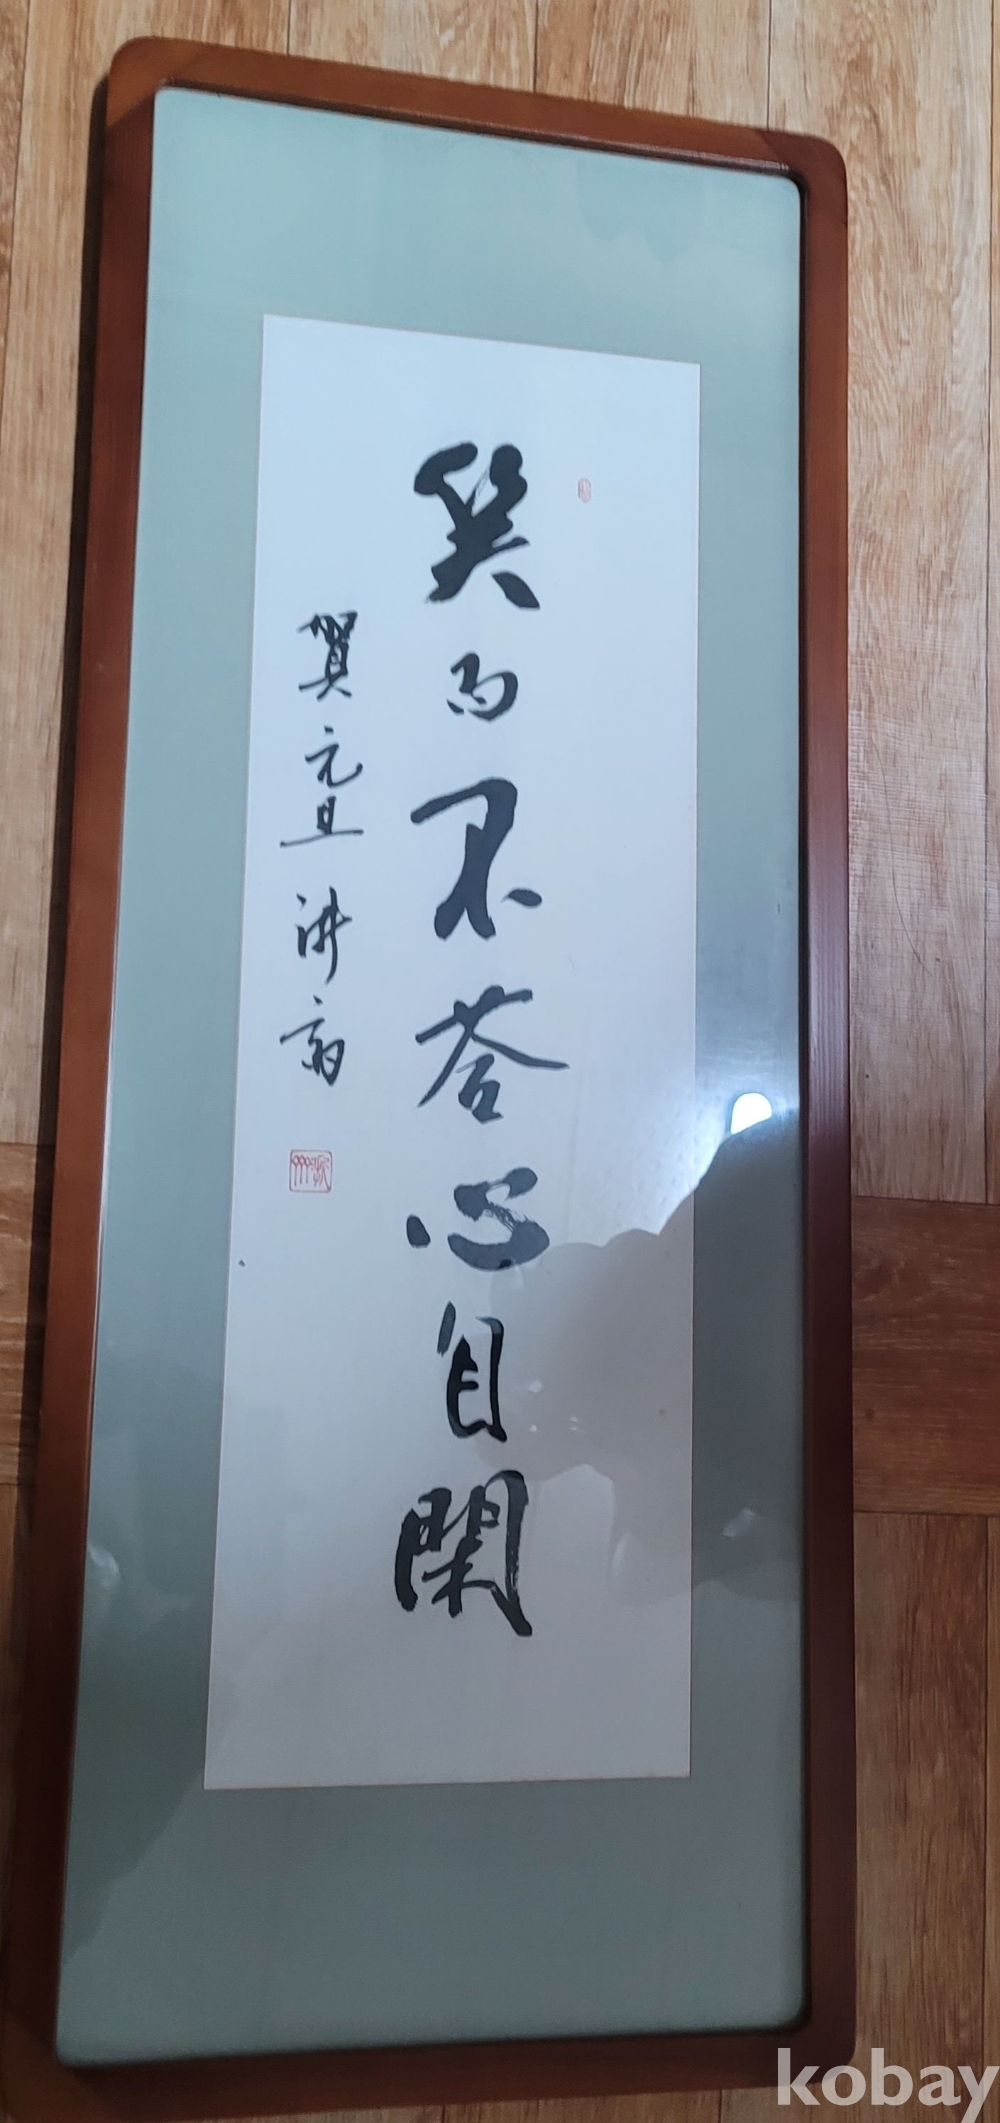 笑而不答心自閑
賀元旦 沸翁
kobay